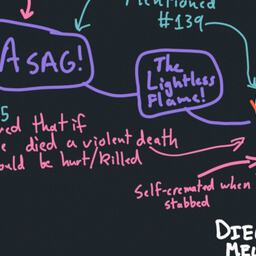 Mentioned
#139
ASAG!
The
Lightless
Flame!
5
that if
died a violent death
be hurt/killed
Self-cremated when
stabbed